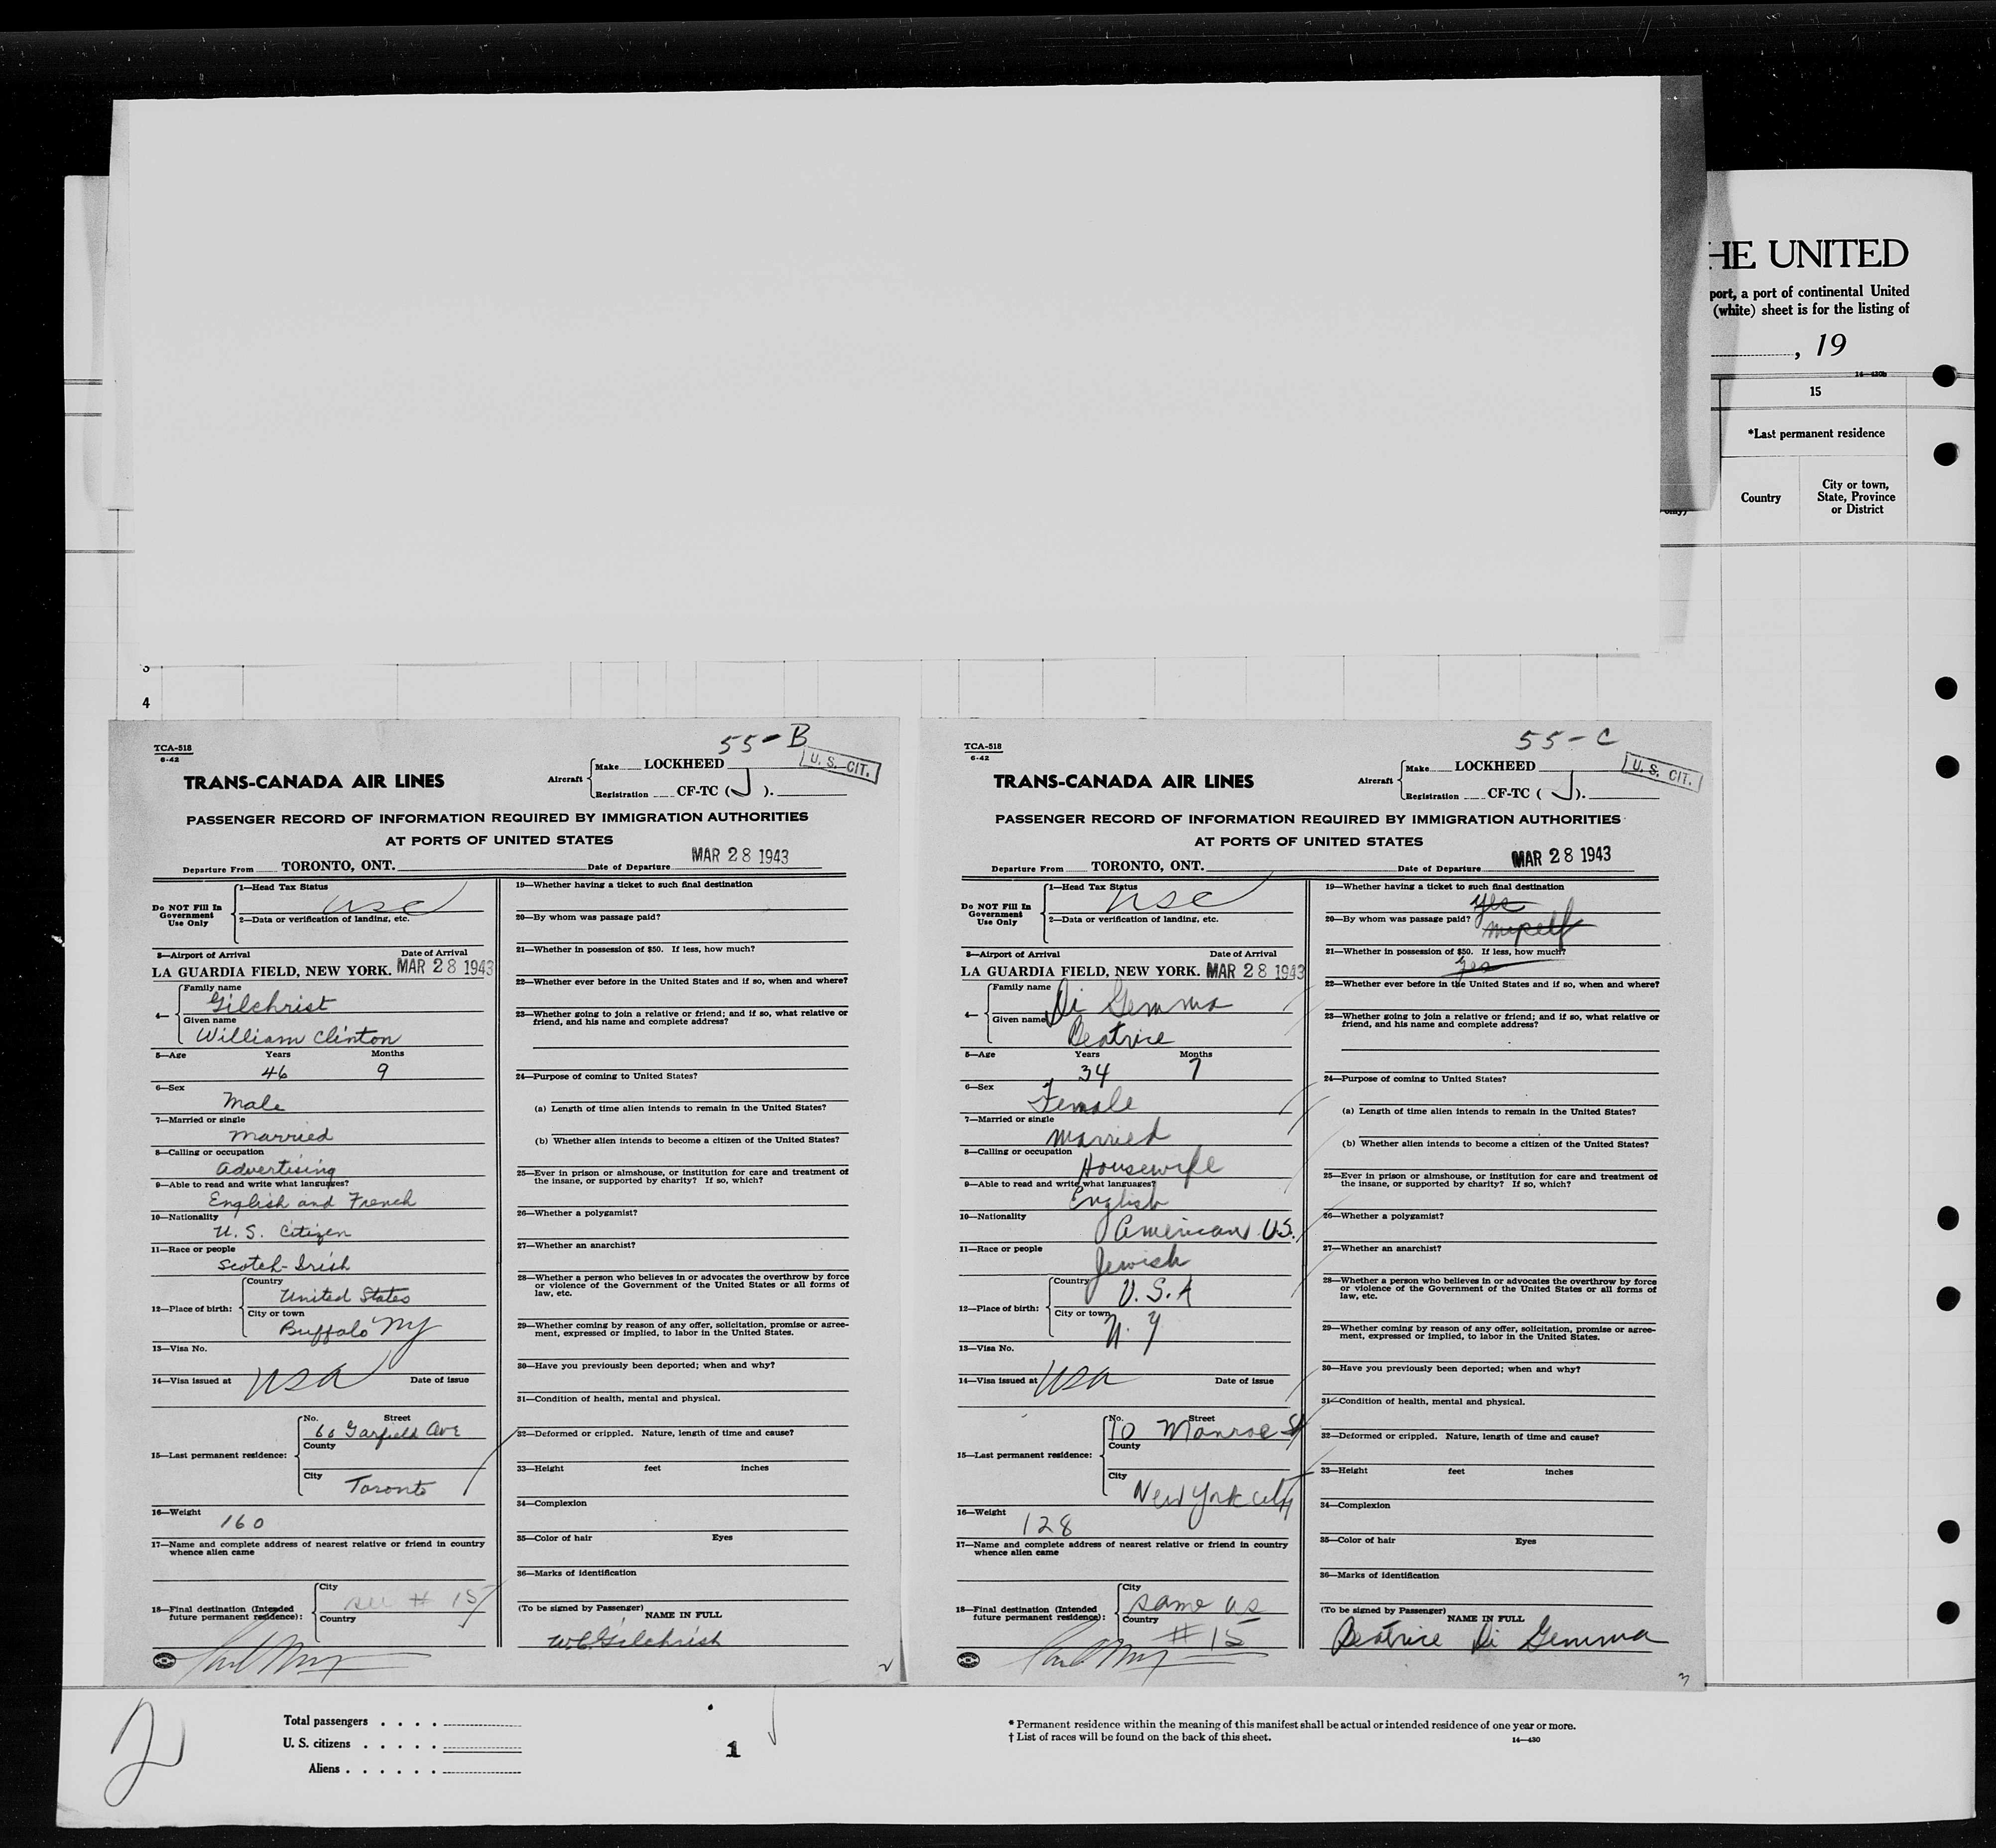 HE UNITED
port, a port of continental United
(white) sheet is for the listing of
, 19
14—430b
15
*Last permanent residence
Country
City or town, State, Province or District
only)
3
4
55-B
TCA-518
6-42
U. S. CIT.
TRANS-CANADA AIR LINES
Aircraft
Make LOCKHEED
Registration CF-TC (J).
PASSENGER RECORD OF INFORMATION REQUIRED BY IMMIGRATION AUTHORITIES
AT PORTS OF UNITED STATES
Departure From TORONTO, ONT. Date of Departure MAR 28 1943
Do NOT Fill In Government Use Only
1—Head Tax Status
USC
2—Data or verification of landing, etc.
3—Airport of Arrival Date of Arrival
LA GUARDIA FIELD, NEW YORK. MAR 28 1943
4—
Family name
Gilchrist
Given name
William Clinton
5—Age Years Months
46 9
6—Sex
Male
7—Married or single
Married
8—Calling or occupation
Advertising
9—Able to read and write what languages?
English and French
10—Nationality
U. S. Citizen
11—Race or people
Scotch-Irish
12—Place of birth:
Country
United States
City or town
Buffalo NY
13—Visa No.
14—Visa issued at USA Date of issue
15—Last permanent residence:
No. Street
60 Garfield Ave
County
City
Toronto
16—Weight
160
17—Name and complete address of nearest relative or friend in country
whence alien came
18—Final destination (Intended
future permanent residence):
City
see # 15
Country
19—Whether having a ticket to such final destination
20—By whom was passage paid?
21—Whether in possession of $50. If less, how much?
22—Whether ever before in the United States and if so, when and where?
23—Whether going to join a relative or friend; and if so, what relative or
friend, and his name and complete address?
24—Purpose of coming to United States?
(a) Length of time alien intends to remain in the United States?
(b) Whether alien intends to become a citizen of the United States?
25—Ever in prison or almshouse, or institution for care and treatment of
the insane, or supported by charity? If so, which?
26—Whether a polygamist?
27—Whether an anarchist?
28—Whether a person who believes in or advocates the overthrow by force
or violence of the Government of the United States or all forms of
law, etc.
29—Whether coming by reason of any offer, solicitation, promise or agree-
ment, expressed or implied, to labor in the United States.
30—Have you previously been deported; when and why?
31—Condition of health, mental and physical.
32—Deformed or crippled. Nature, length of time and cause?
33—Height feet inches
34—Complexion
35—Color of hair Eyes
36—Marks of identification
(To be signed by Passenger)
NAME IN FULL
W.C. Gilchrist
2
55-C
TCA-518
6-42
U. S. CIT.
TRANS-CANADA AIR LINES
Aircraft
Make LOCKHEED
Registration CF-TC (J).
PASSENGER RECORD OF INFORMATION REQUIRED BY IMMIGRATION AUTHORITIES
AT PORTS OF UNITED STATES
Departure From TORONTO, ONT. Date of Departure MAR 28 1943
Do NOT Fill In Government Use Only
1—Head Tax Status
USC
2—Data or verification of landing, etc.
3—Airport of Arrival Date of Arrival
LA GUARDIA FIELD, NEW YORK. MAR 28 1943
4—
Family name
Di Gemma
Given name
Beatrice
5—Age Years Months
34 7
6—Sex
Female
7—Married or single
Married
8—Calling or occupation
Housewife
9—Able to read and write what languages?
English
10—Nationality
American U.S.
11—Race or people
Jewish
12—Place of birth:
Country
U. S. A
City or town
N. Y
13—Visa No.
14—Visa issued at USA Date of issue
15—Last permanent residence:
No. Street
10 Monroe St
County
City
New York city
16—Weight
128
17—Name and complete address of nearest relative or friend in country
whence alien came
18—Final destination (Intended
future permanent residence):
City
same as
Country
# 15
19—Whether having a ticket to such final destination
yes
20—By whom was passage paid?
myself
21—Whether in possession of $50. If less, how much?
yes
22—Whether ever before in the United States and if so, when and where?
23—Whether going to join a relative or friend; and if so, what relative or
friend, and his name and complete address?
24—Purpose of coming to United States?
(a) Length of time alien intends to remain in the United States?
(b) Whether alien intends to become a citizen of the United States?
25—Ever in prison or almshouse, or institution for care and treatment of
the insane, or supported by charity? If so, which?
26—Whether a polygamist?
27—Whether an anarchist?
28—Whether a person who believes in or advocates the overthrow by force
or violence of the Government of the United States or all forms of
law, etc.
29—Whether coming by reason of any offer, solicitation, promise or agree-
ment, expressed or implied, to labor in the United States.
30—Have you previously been deported; when and why?
31—Condition of health, mental and physical.
32—Deformed or crippled. Nature, length of time and cause?
33—Height feet inches
34—Complexion
35—Color of hair Eyes
36—Marks of identification
(To be signed by Passenger)
NAME IN FULL
Beatrice Di Gemma
3
2
Total passengers . . . .
U. S. citizens . . . . .
Aliens . . . . . .
1
* Permanent residence within the meaning of this manifest shall be actual or intended residence of one year or more.
† List of races will be found on the back of this sheet. 14—430